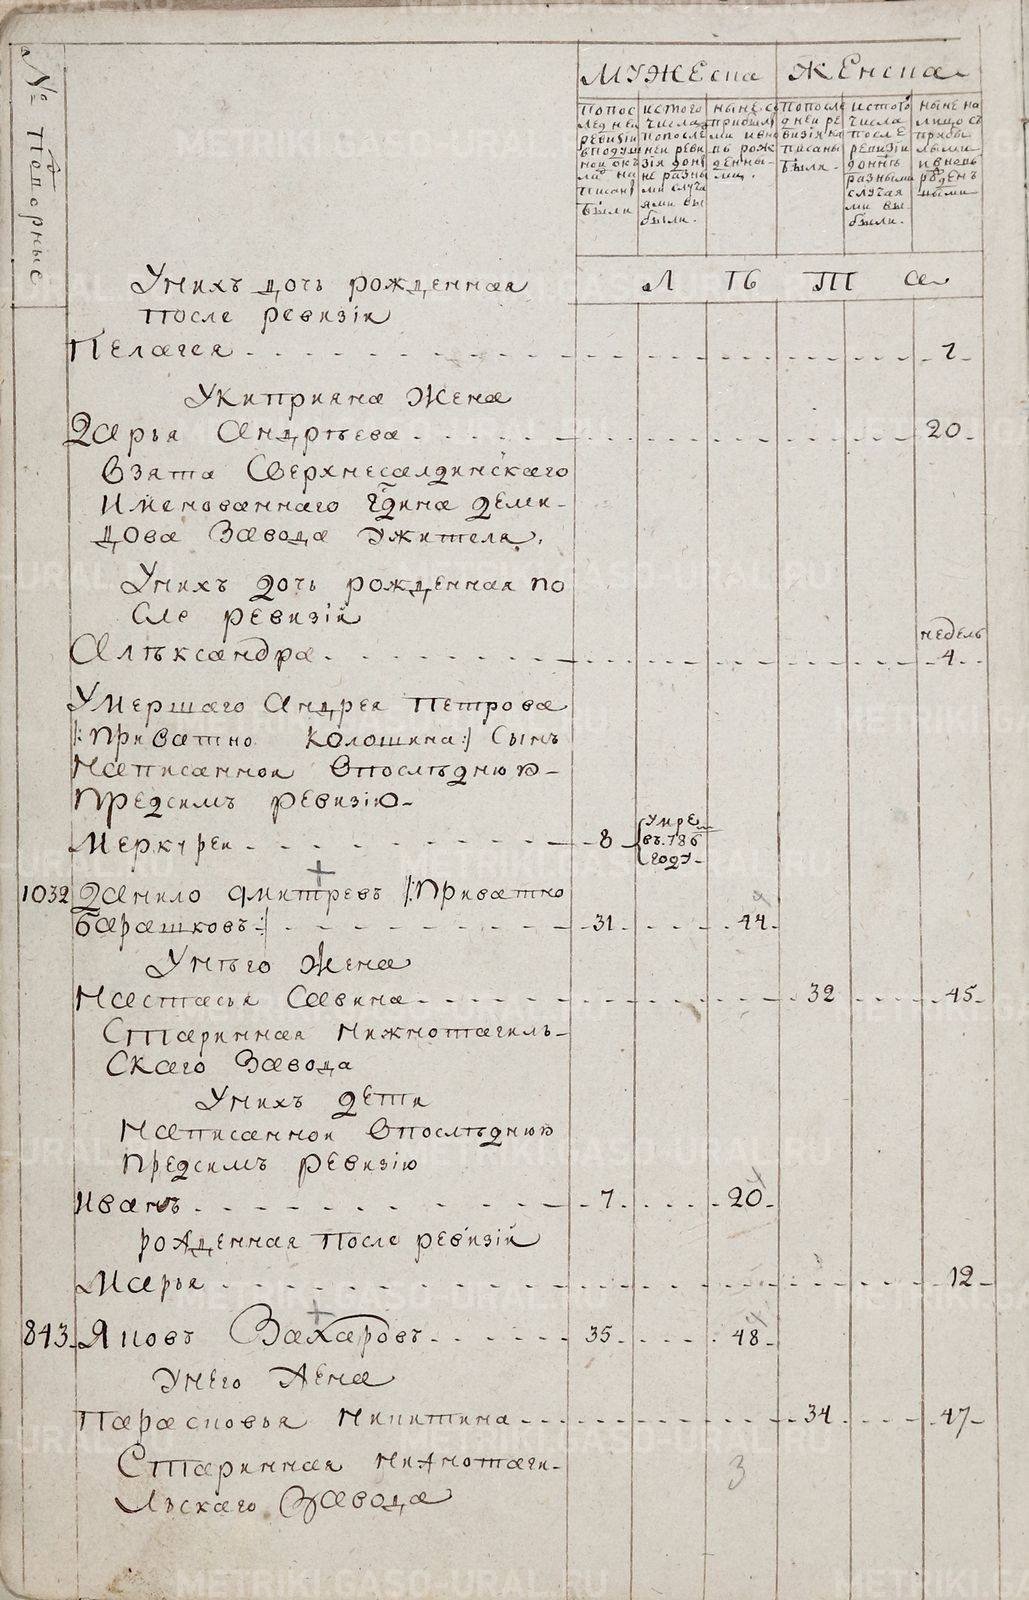 № Подворные
МУЖЕска ЖЕнска
попос
ледней
ревизіи
вподуш
ной ок
ладъ на
писан
были
истого
числа
попосле
ней реви
зіи дон
не разны
ми случа
ями вы
были.
ныне съ
прибылы
ми ивно
въ рож
денны
ми.
попосле
дней ре
визіи на
писаны
были.
истого
числа
после
ревизіи
донне
разными
случая
ми вы
были.
ныне на
лицо съ
прибы
лыми
ивновь
рожден
ными
Л ТЬ ТТ а
Унихъ дочь рожденная
после ревизіи
Пелагея 7
Укиприяна Жена
Дарья Андреева 20
взята Сверхнесалдинскаго
Именованнаго Гдина деми-
дова Завода ужителя,
Унихъ дочь рожденная по
сле ревизіи
недель
Алѣксандра 4
Умершаго Андрея Петрова
/:Приватно Колошина:/ Сынъ
Написанной впослѣднюю
Предсимъ ревизію
Меркурей 8 Умре
въ.786
году
1032 Данило дмитревъ /:Приватно
Барашковъ:/ 31 44
Унѣго Жена
Настасья Савина 32 45
Старинная Нижнотагиль-
Скаго Завода
Унихъ дети
Написанной впослѣднюю
Предсимъ ревизію
Иванъ 7 20
рожденная после ревизіи
Марья 12
843 Яковъ Захаровъ 35 48
Унего Жена
Парасковья Никитина 34 47
Старинная нижнотаги-
льскаго Завода
3
METRIKI.GASO-URAL.RU